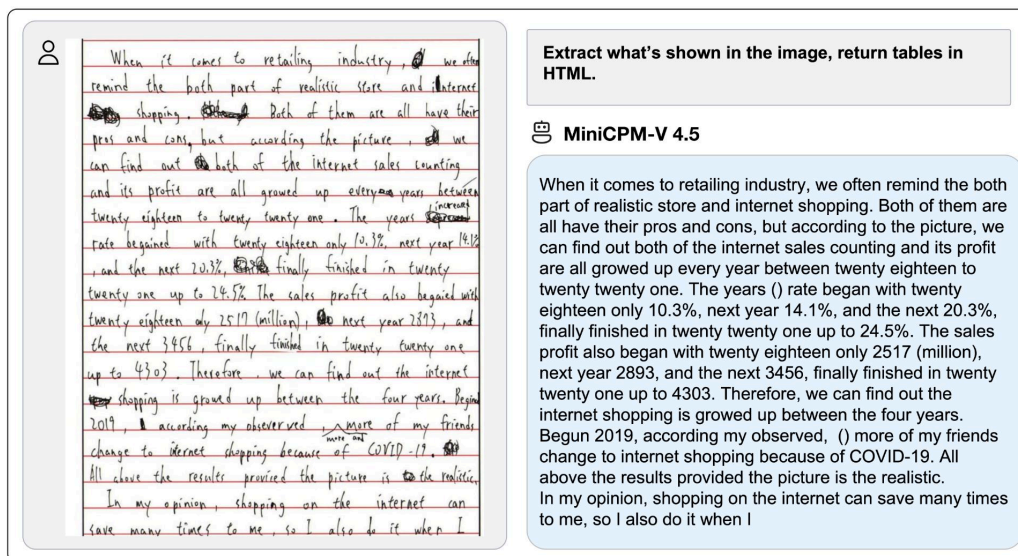 When it comes to retailing industry, we often
remind the both part of realistic store and internet
shopping. Both of them are all have their
pros and cons, but according the picture, we
can find out both of the internet sales counting
and its profit are all growed up every years between
twenty eighteen to twenty twenty one. The years increased
rate begained with twenty eighteen only 10.3%, next year 14.1%
, and the next 20.3%, finally finished in twenty
twenty one up to 24.5%. The sales profit also begained with
twenty eighteen only 2517 (million), next year 2893, and
the next 3456, finally finished in twenty twenty one
up to 4303. Therefore, we can find out the internet
shopping is growed up between the four years. Begind
2019, according my obseverved, more and more of my friends
change to internet shopping because of COVID-19.
All above the results proviced the picture is the realistic.
In my opinion, shopping on the internet can
save many times to me, so I also do it when I
Extract what's shown in the image, return tables in
HTML.
MiniCPM-V 4.5
When it comes to retailing industry, we often remind the both
part of realistic store and internet shopping. Both of them are
all have their pros and cons, but according to the picture, we
can find out both of the internet sales counting and its profit
are all growed up every year between twenty eighteen to
twenty twenty one. The years () rate began with twenty
eighteen only 10.3%, next year 14.1%, and the next 20.3%,
finally finished in twenty twenty one up to 24.5%. The sales
profit also began with twenty eighteen only 2517 (million),
next year 2893, and the next 3456, finally finished in twenty
twenty one up to 4303. Therefore, we can find out the
internet shopping is growed up between the four years.
Begun 2019, according my observed, () more of my friends
change to internet shopping because of COVID-19. All
above the results provided the picture is the realistic.
In my opinion, shopping on the internet can save many times
to me, so I also do it when I